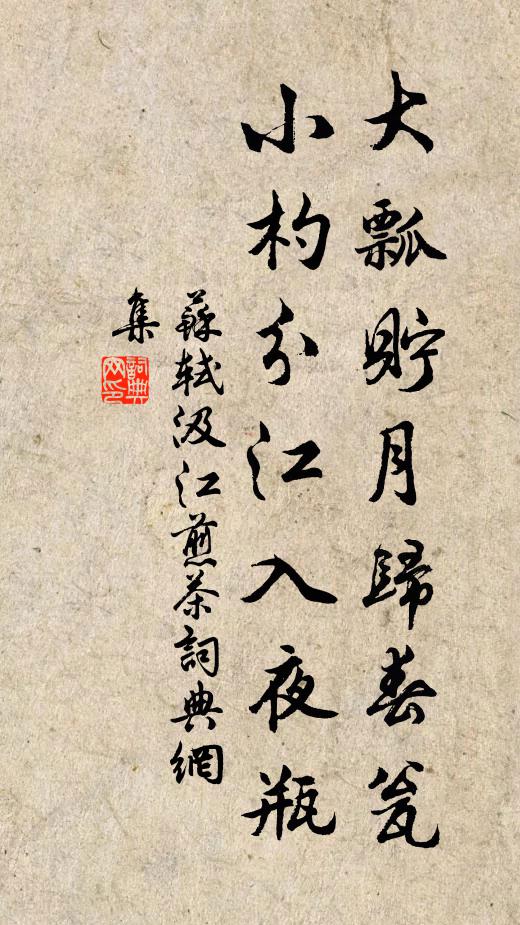 大瓢貯月歸春瓮
小杓分江入夜瓶
蘇軾汲江煎茶詞典網
集
詞典
网印